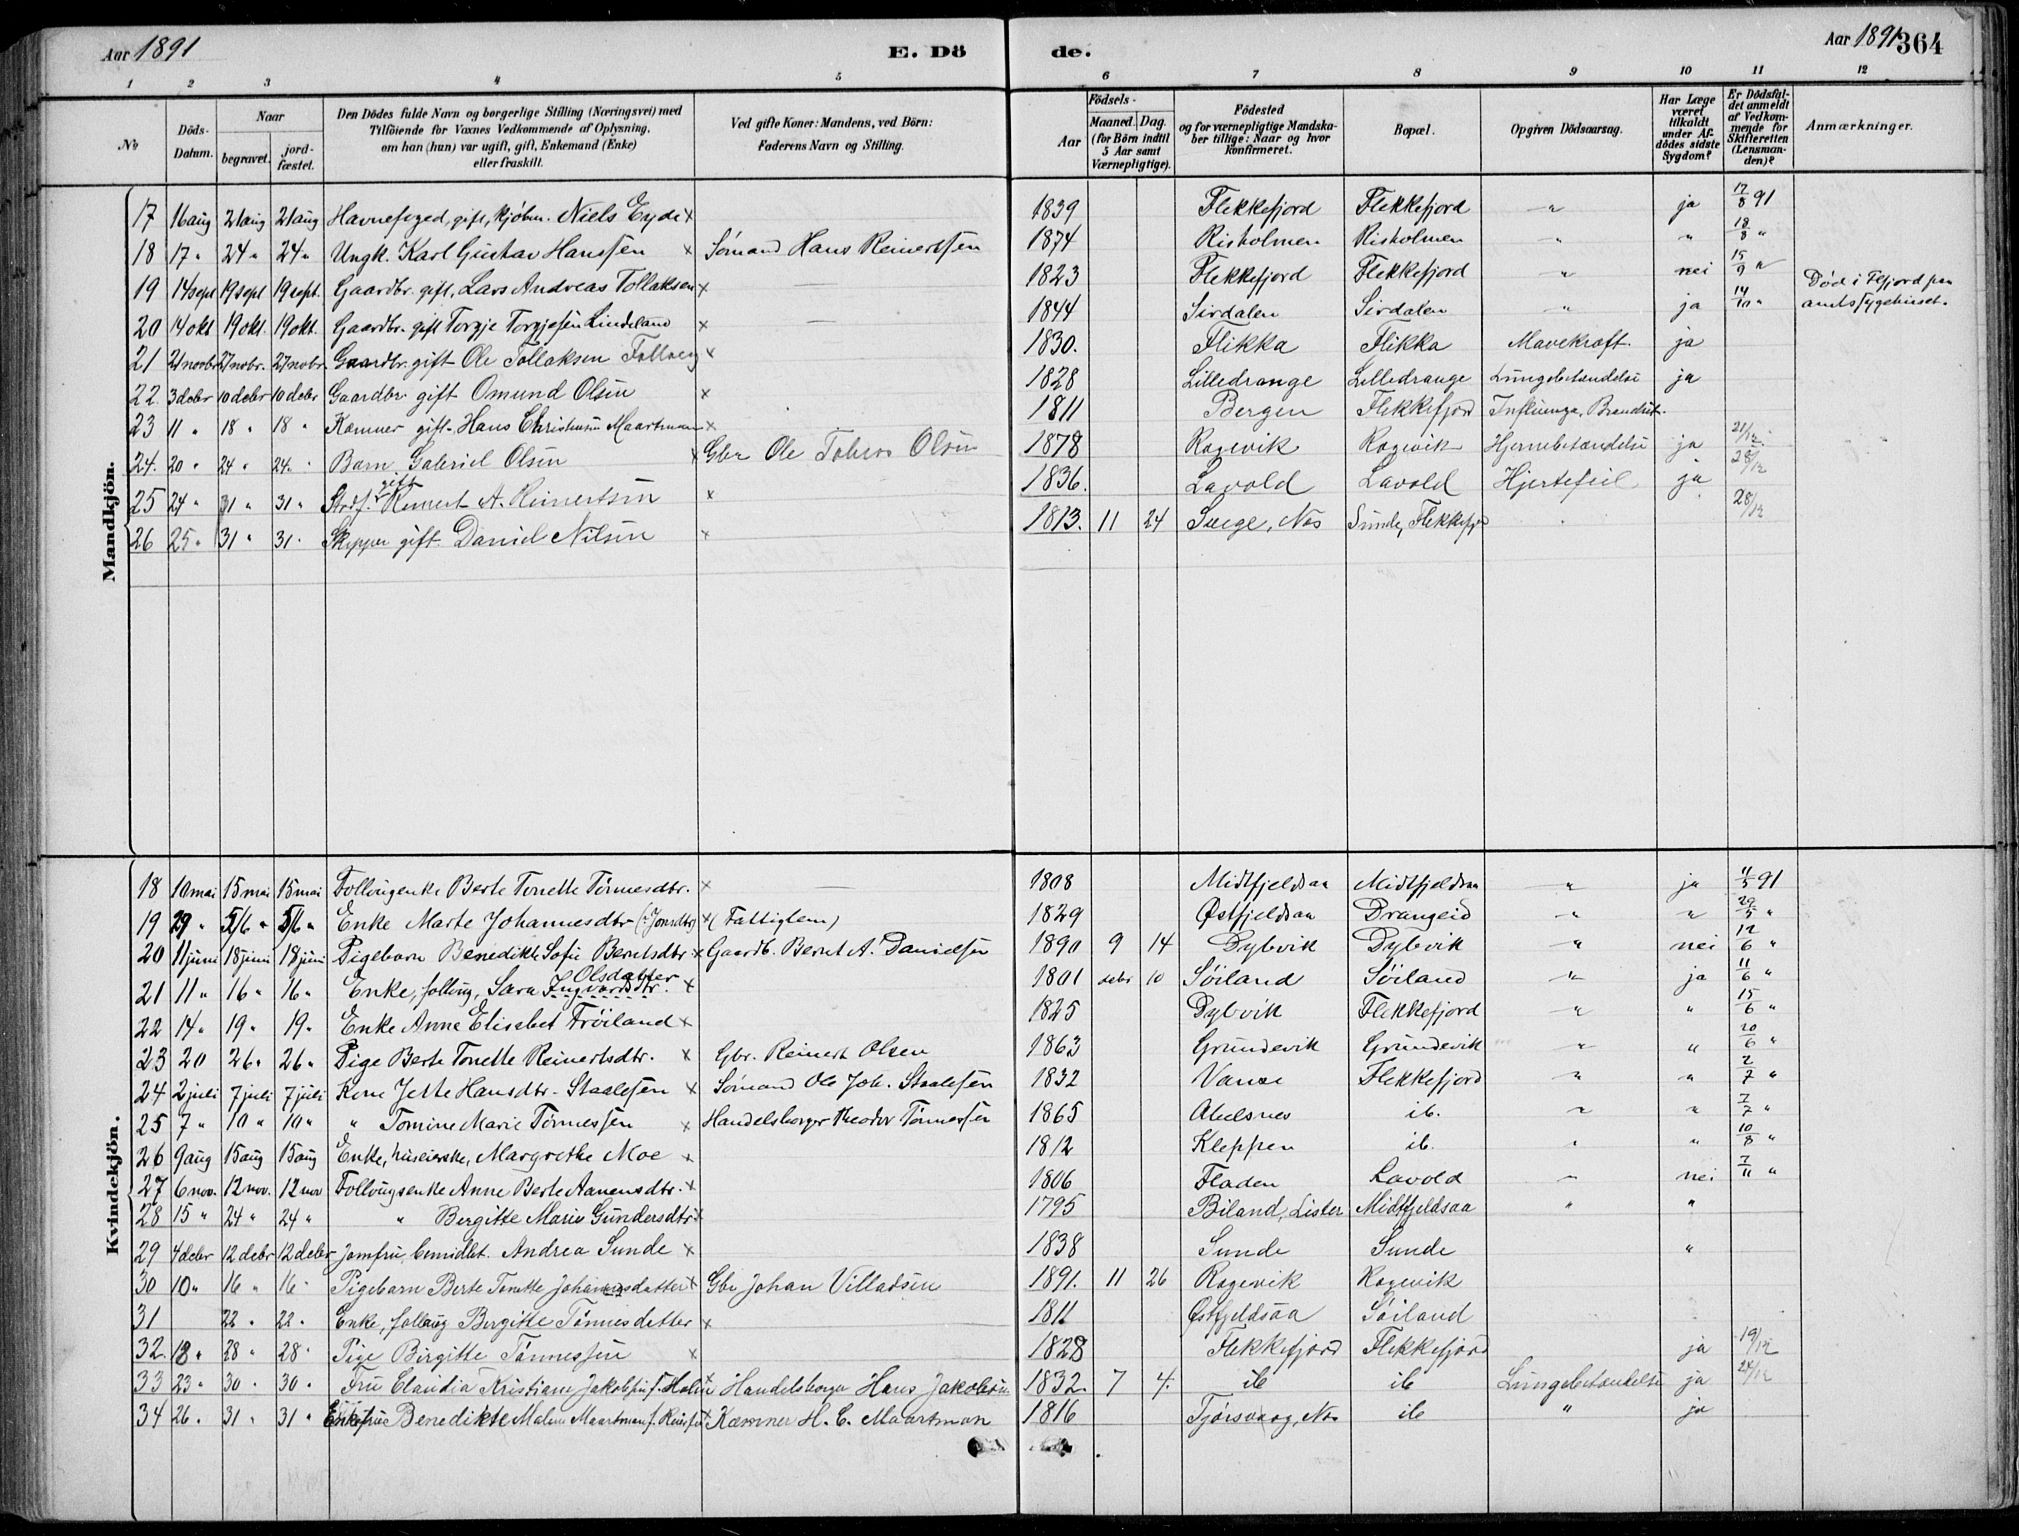 Aar 1891 E. Dö de. Aar 1891 364
1 2 3 4 5 6 7 8 9 10 11 12
No
Döds-Datum.
Naar
begravet.
jord-fæstet.
Den Dödes fulde Navn og borgerlige Stilling (Næringsvei) med
Tilföiende for Voxnes Vedkommende af Oplysning,
om han (hun) var ugift, gift, Enkemand (Enke)
eller fraskilt.
Ved gifte Koner: Mandens, ved Börn:
Faderens Navn og Stilling.
Födsels-
Aar
Maaned. Dag.
(for Börn indtil
5 Aar samt
Værnepligtige).
Födested
og for værnepligtige Mandska-
ber tillige: Naar og hvor
konfirmeret.
Bopæl.
Opgiven Dödsaarsag.
Har Læge
været
tilkaldt
under Af-
dödes sidste
Sygdom?
Er Dödsfal-
det anmeldt
af Vedkom-
mende for
Skifteretten
(Lensman-
den)?
Anmærkninger.
Mandkjön.
17 16 aug 21 aug 21 aug Havnefoged, gift, kjøbm. Niels Eyde x 1839 Flekkefjord Flekkefjord " ja 17/8 91
18 17 " 24 " 24 " Ungk. Karl Gustav Hanssen x Sømand Hans Reinertsen 1874 Risholmen Risholmen " " 18/8 "
19 14 sept 19 sept 19 sept. Gaardbr. gift, Lars Andreas Tollaksen x — 1823 Flekkefjord Flekkefjord " nei 15/9 "
20 14 okt 19 okt. 19 okt. Gaardbr. gift Torgje Torgjesen Lindeland x — 1844 Sirdalen Sirdalen " ja 14/10 " Død i Flfjord paa amtssygehuset.
21 21 novbr 27 nobr. 27 nobr. Gaardbr. gift Ole Tollaksen x 1830. Flikka Flikka Mavekræft. ja
22. 3 debr 10 debr 10 debr Gaardbr. gift Omund Olsen x 1828 Lilledrange Lilledrange Lungebetændelse ja
23 11 " 18 " 18 " Kæmner gift. Hans Christian Maartman x 1811 Bergen Flekkefjord Influenza,
24. 20 " 24 " 24. " Barn Gabriel Olsen x Gbr Ole Tobias Olsen 1878 Rogevik Rogevik Hjernebetændelse ja 21/12
25 24 " 31 " 31 " gift Reinert A. Reinertsen x 1836. Lavold Lavold Hjertefeil ja 28/12
26 25 " 31 " 31 " Skipper gift. Daniel Nilsen x 1813. 11 24 Nes Sunde, Flekkefjd 28/12
Kvindekjön.
18 10 mai 15 mai 15 mai Follougenke Berte Tonette Tønnesdtr. x — 1808 Midtfjeldsaa Midtfjeldsaa " ja 11/5 91
19 29 " 5/6 " 5/6 " Enke Marte Johannesdtr (Jonsdtr) x (Fattiglem) 1829 Østfjeldsaa Drangeid " " 29/5 "
20 11 juni 18 juni 18 juni Pigebarn Benedikte Sofie Berntsdtr x Gaardb. Bernt A. Danielsen 1890 9 14 Dybvik Dybvik " nei 12/6 "
21 11 " 16 " 16 " Enke, folloug, Sara Ingvardsdtr. Olsdatter x 1801 debr 10 Søiland Søiland " ja 11/6 "
22 14 " 19 " 19 " Enke Anne Elisabet Frøiland x 1825 Dybvik Flekkefjord " " 15/6 "
23 20 26 " 26 " Pige Berte Tonette Reinertsdtr. x Gbr. Reinert Olsen 1863 Grundevik Grundevik " " 20/6 "
24 2 juli 7 juli 7 juli Kone Jette Hansdtr. Staalesen x Sømand Ole Joh. Staalesen 1832 Vanse Flekkefjord " " 2/7 "
25 7 " 10 " 10 " " Tomine Marie Tønnessen x Handelsborger Theodor Tønnessen 1865 Abelsnes ib. " " 7/7 "
26 9 aug 15 aug 15 aug Enke, huseierske, Margrethe Moe x 1812 Kleppen ib. " " 10/8 "
27 6 nov. 12 nov. 12 nov Follougsenke Anne Berte Aanensdtr. x 1806 Fladen Lavold " nei 7/11 "
28 15 " 24 " 24 " " Bergitte Marie Gundersdtr x 1795 Biland, Lister Midtfjeldsaa " "
29 4 debr 12 debr 12 debr Jomfru, bemidlet. Andrea Sunde x 1838 Sunde Sunde "
30 10 " 16 " 16 " Pigebarn Berte Tonette Johannesdatter x Gbr Johan Villadsen 1891. 11 26 Rogevik Rogevik
31 22 " 22 " Enke, follaug Bergitte Tønnesdatter x 1811 Østfjeldsaa Søiland
32. 18 " 28 " 28 " Pige Birgitte Tønnessen x 1828 Flekkefjord Flekkefjord ja 19/12
33 23 " 30 " 30 " Fru Claudia Kristiane Jakobsen f. Holm x Handelsborger Hans Jakobsen 1832. 7 4. ib ib Lungebetændelse ja 24/12
34 26 " 31 " 31 " Enkefru Benedikte Malene Maartman f. x Kæmner H. C. Maartman 1816 Tjørsvaag, Nes ib " ja